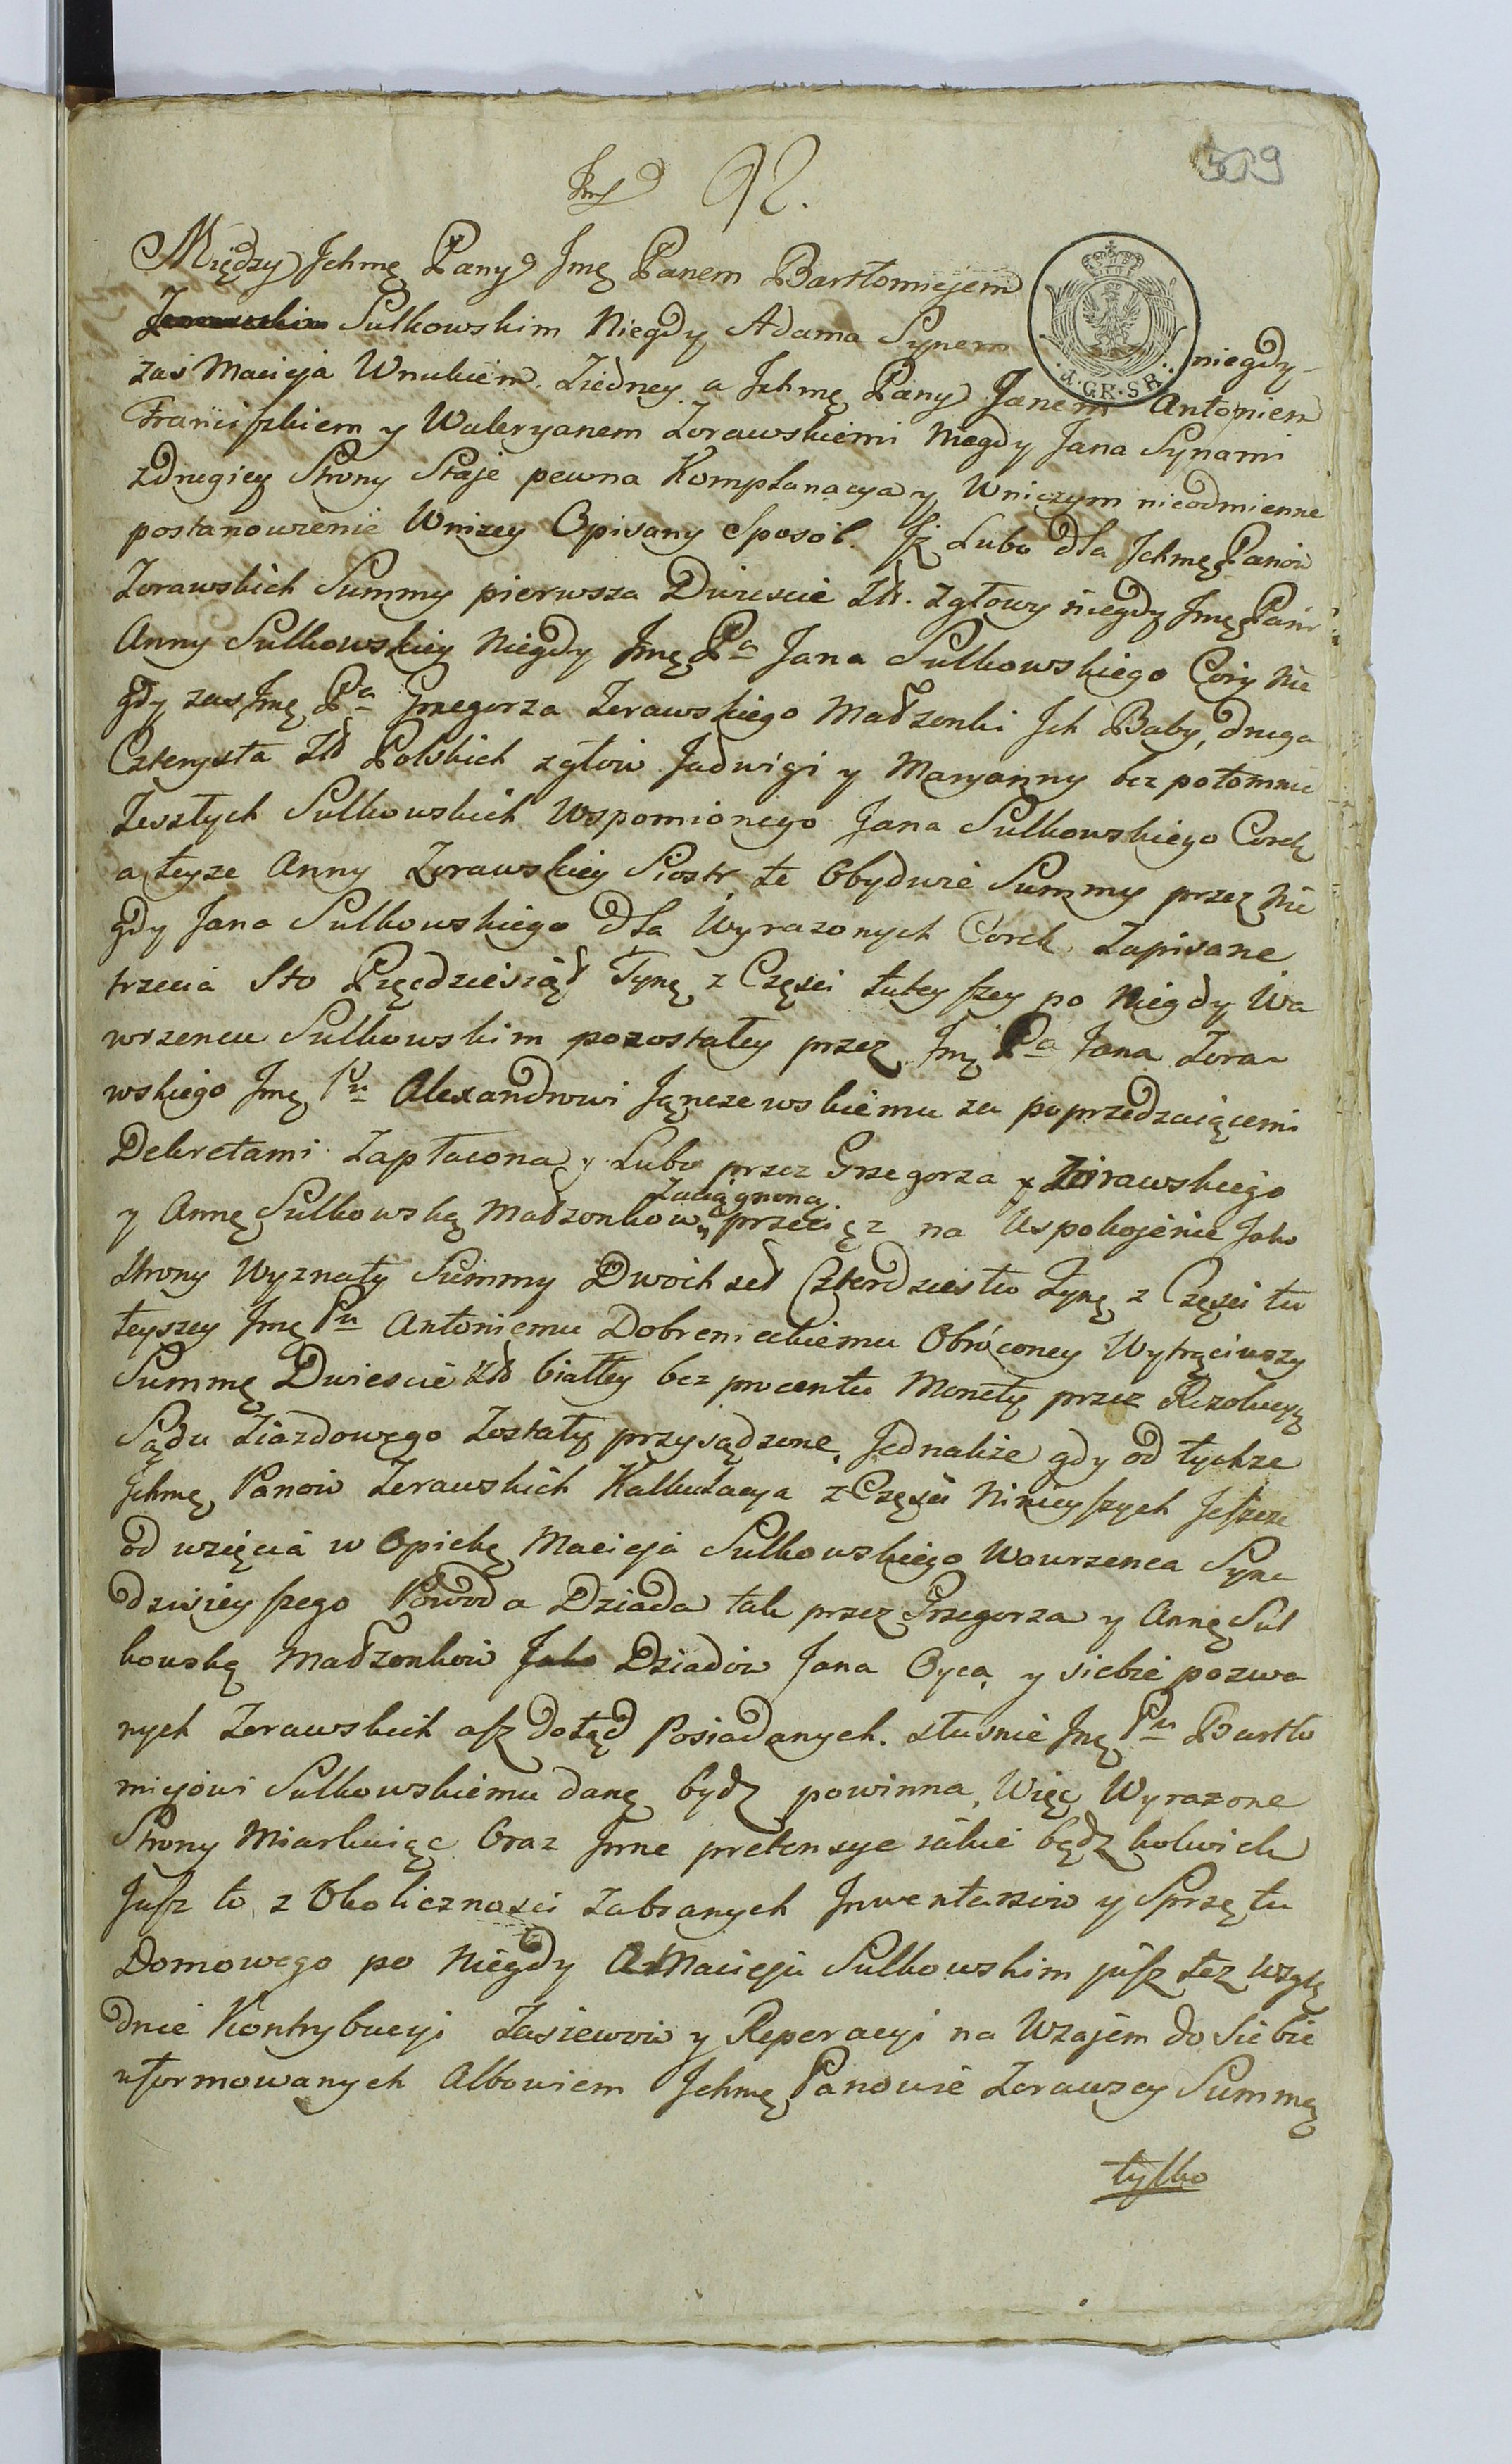 309
92.
Między Jchmę Pany Jmę Panem Bartłomiejem
Sulkowskim Niegdy Adama Synem niegdy
zaś Macieja Wnukiem. Ziedney a Jchmę Pany Janem Antoniem
Franciszkiem y Waleryanem Zorawskiemi Niegdy Jana Synami
zdrugiey Strony Staje pewna Komplanacya y Wniczym nieodmienne
postanowienie Wnizey Opisany Sposob. Jż Lubo dla Jchmę Panow
Zorawskich Summy pierwsza Dwiescie Zł. zgłowy niegdy Jmę Pani
Anny Sulkowskiey Niegdy Jmę Pa Jana Sulkowskiego Cory Nie
gdy zas Jmę Pa Grzegorza Zerawskiego Małzonki Jch Baby, druga
Czterysta Zł Polskich zgłow Jadwigi y Maryanny bez potomnie
Zeszłych Sulkowskich Wspomionego Jana Sulkowskiego Corek
a teyze Anny Zerawskiey Siostr te Obydwie Summy przez Nie
gdy Jana Sulkowskiego dla Wyrazonych Corek Zapisane
trzecia Sto Pięcdziesiąt Tynę z Częsci tuteyszey po Niegdy Wa
wrzencu Sulkowskim pozostałey przez Jmę Pa Jana Zora
wskiego Jmę Pu Alexandrowi Janczewskiemu za poprzedzaiącemi
Dekretami Zapłacona y Lubo przez Grzegorza Zorawskiego
Zaciągnoną
y Annę Sulkowską Małzonkow przeciąz na Uspokojenie Jako
Strony Wyznały Summy Dwoch set Czterdziestu Tynę z Częsci tu
teyszey Jmę Pu Antoniemu Dobrenieckiemu Obróconey Wytrąciwszy
Summę Dwiescie Zł białłey bez procentu Monety przez Rezolucyą
Sądu Ziazdowego Zostały przysądzone, Jednakże gdy od tychze
Jchmę Panow Zerawskich Kalkulacya z Częsci Ninieyszych Jeszcze
od wzięcia w Opiekę Macieja Sulkowskiego Wawrzenca Syna
dzisieyszego Powoda Dziada tak przez Grzegorza y Annę Sul
kowską Małzonkow Jako Dziadow Jana Oyca y siebie pozwa
nych Zerawskich asz dotąd Posiadanych. słusnie Jmę Pu Bartło
miejowi Sulkowskiemu daną bydz powinna, Więc Wyrazone
Strony Miarkuiąc Oraz Jnne pretensye jakie bądz kolwiek
Jusz to z Okolicznosci zabranych Jnwentarzow y Sprzętu
Domowego po Niegdy Macieju Sulkowskim jusz tez wzglę
dnie Kontrybucyi Zasiewow y Reperacyi na Wzajem do Siebie
uformowanych Albowiem Jchmę Panowie Zerawscy Summę
tylko